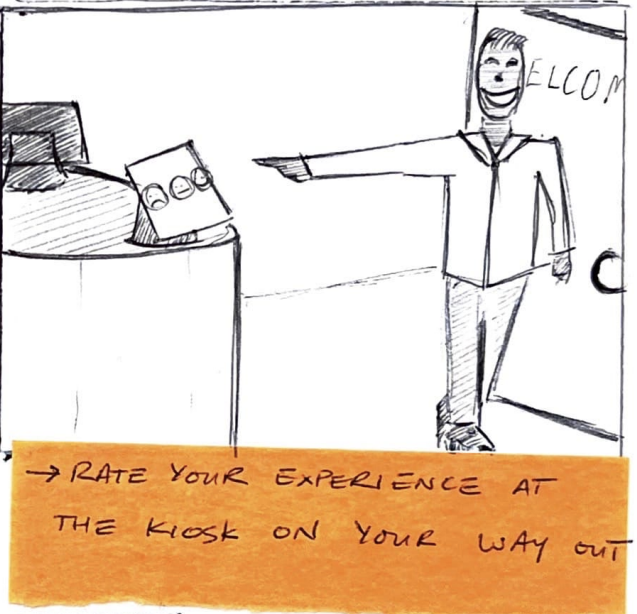 ELCOM
→ RATE YOUR EXPERIENCE AT
THE KIOSK ON YOUR WAY OUT